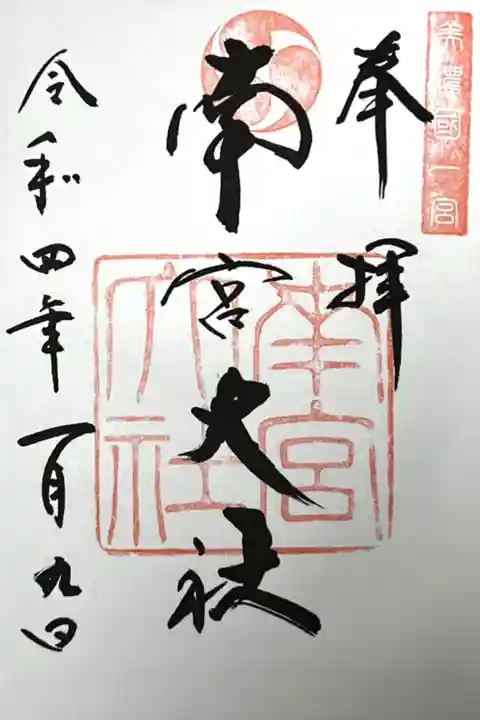 美濃國一宮
奉拝
南宮大社
南宮大社
令和四年一月九日